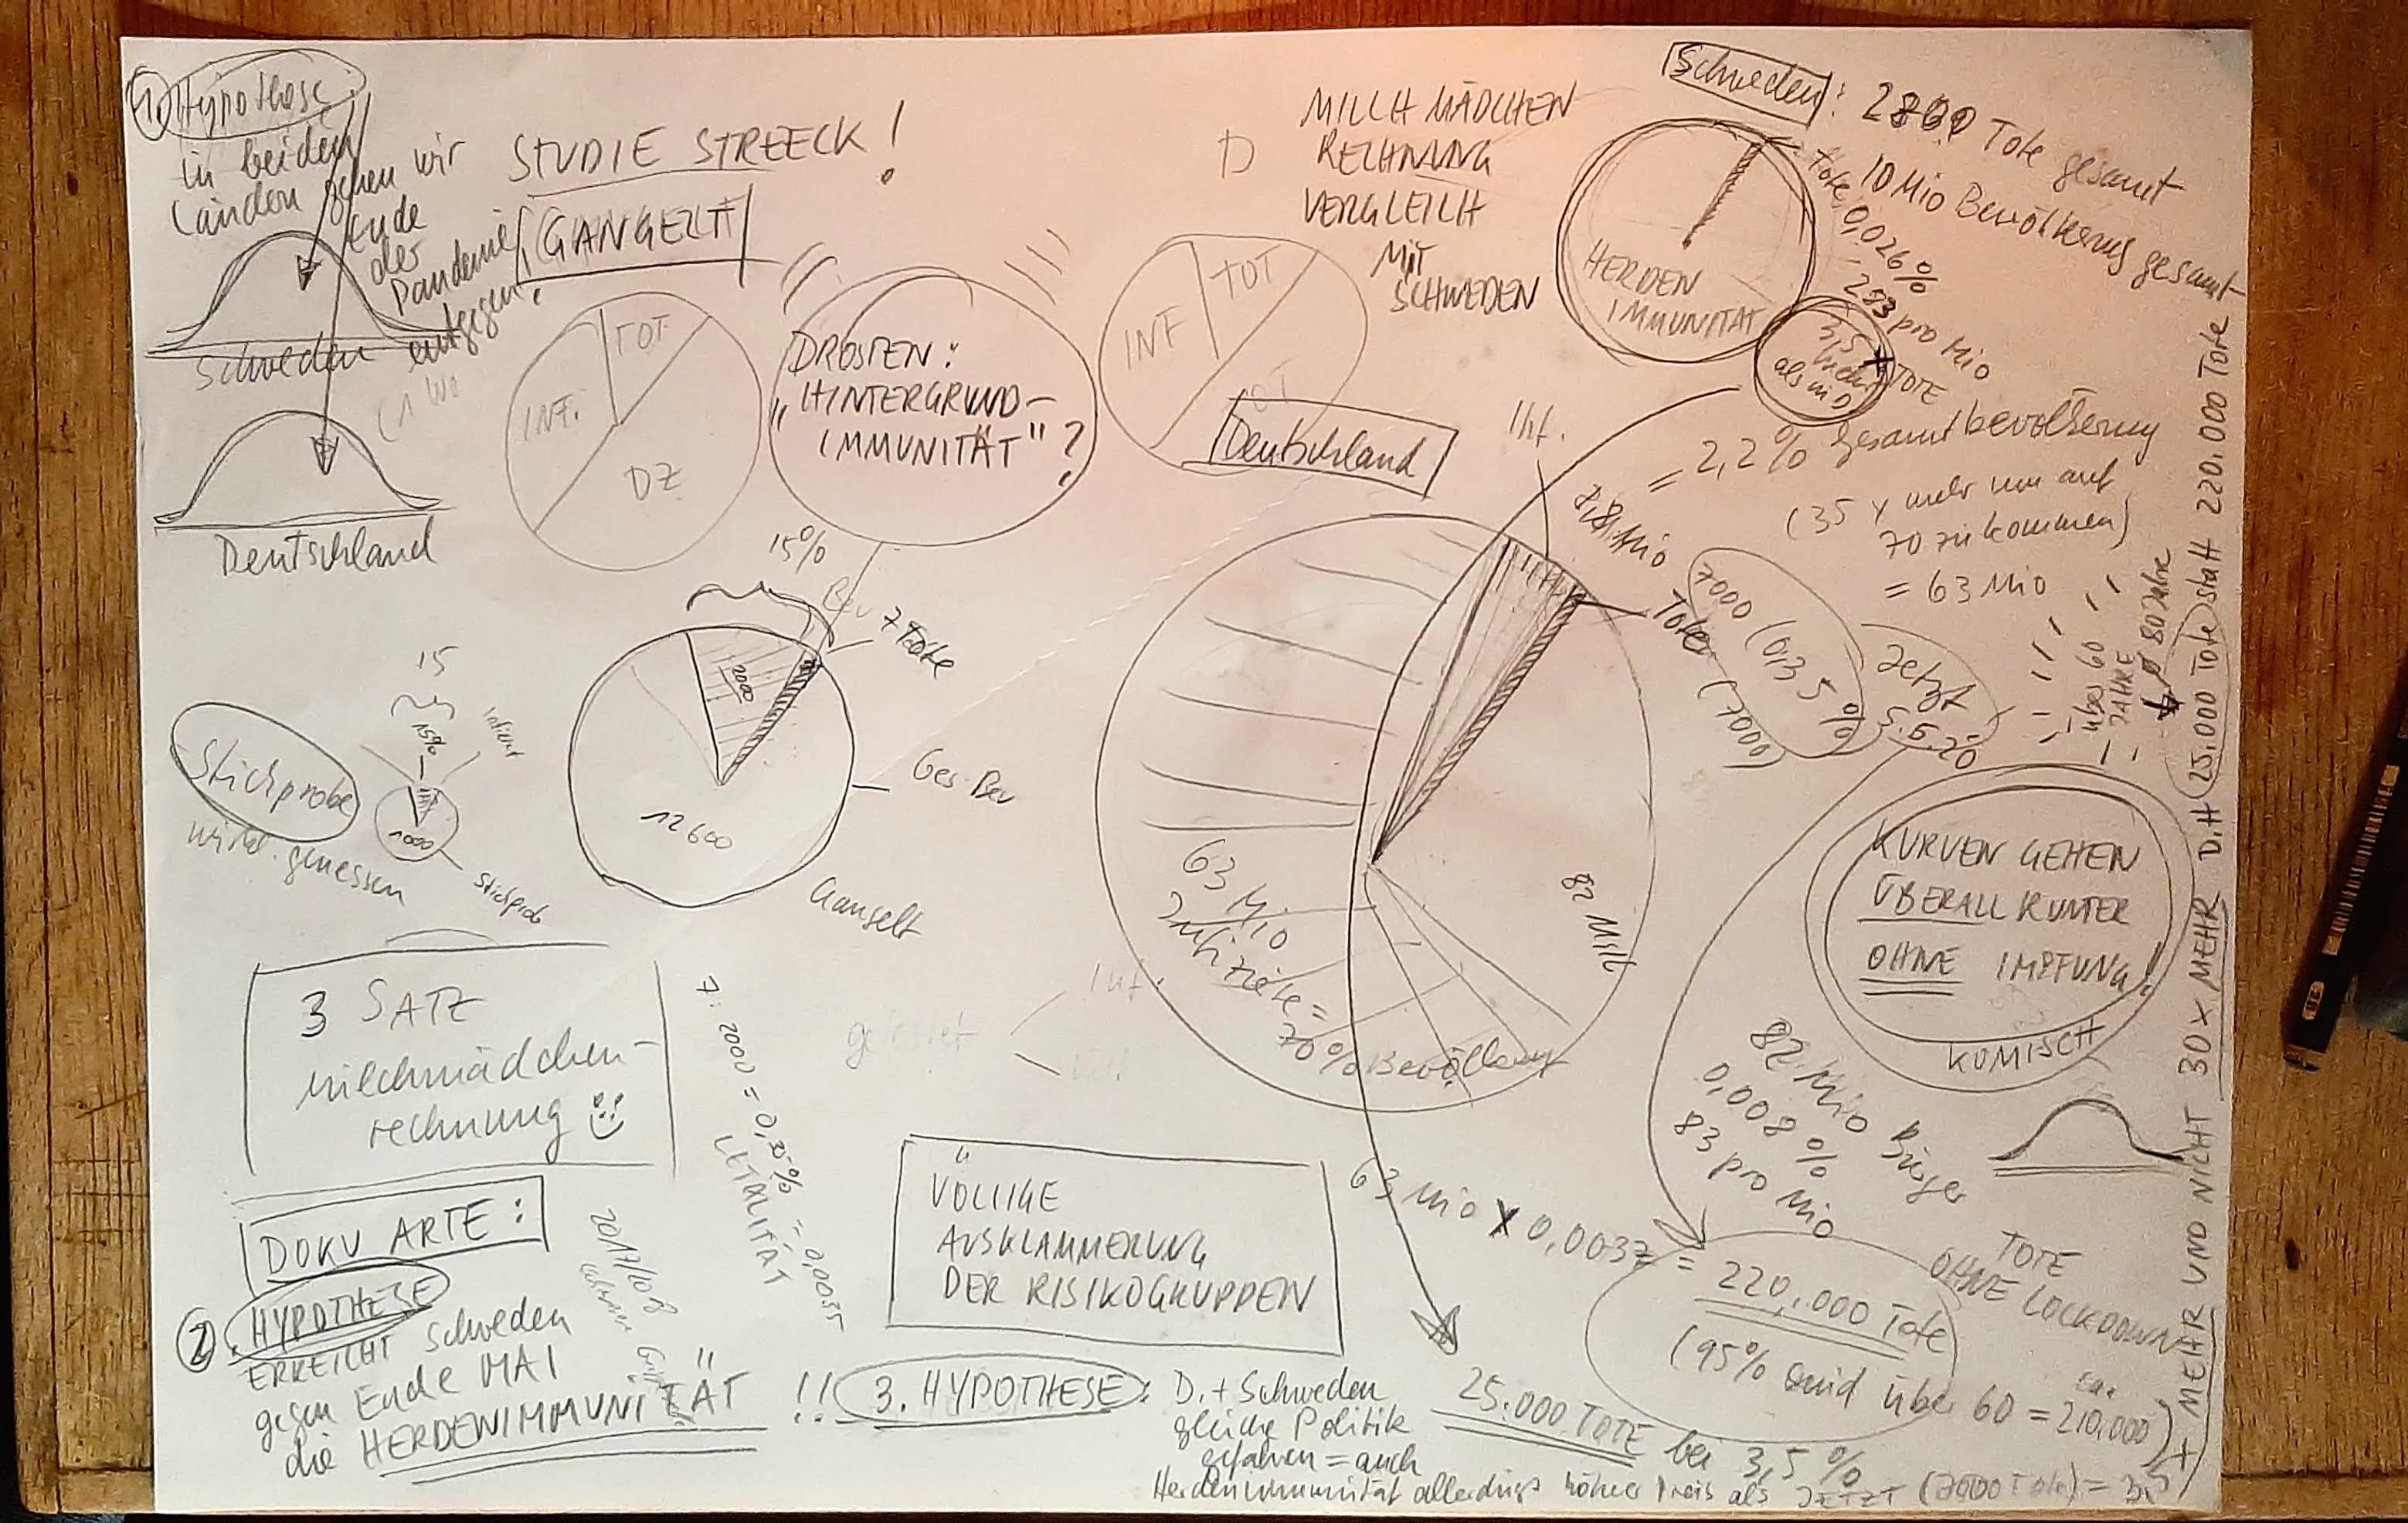 1. Hypothese:
in beiden
Länden gehen wir
Ende
der
Pandemie
entgegen.
Schweden
Deutschland
STUDIE STREECK!
GANGELT
INF.
TOT
DZ
DROSTEN:
„HINTERGRUND-
IMMUNITÄT"?
INF
TOT
Deutschland
MILCHMÄDCHEN
RECHNUNG
VERGLEICH
MIT
SCHWEDEN
Schweden:
Tote gesamt
10 Mio Bevölkerung gesamt
Tote 0,026%
283 pro Mio
HERDEN
IMMUNITÄT
3,5 x
mehr
als in D
TOTE
= 2,2% Gesamtbevölkerung
(35 x mehr um auf
70 zu kommen)
= 63 Mio
Inf.
Tote (7000)
7000 (0,35%)
Jetzt
5.5.20
über 60
JAHRE
80 Jahre
15%
Bev
7 Tote
2000
12600
Ges. Bev
Gangelt
15
15%
Stichprobe
1000
Stichprobe
wird gemessen
63 Mio
Infizierte =
70% Bevölkerung
82 Mill
KURVEN GEHEN
ÜBERALL RUNTER
OHNE IMPFUNG!
KOMISCH
3 SATZ
milchmädchen-
rechnung
7:2000 = 0,35% = 0,0035
LETALITÄT
getestet
Inf.
DOKU ARTE:
2. HYPOTHESE
ERREICHT Schweden
gegen Ende MAI
die HERDENIMMUNITÄT !!
VÖLLIGE
AUSKLAMMERUNG
DER RISIKOGRUPPEN
82 Mio Bürger
0,008%
83 pro Mio
63 Mio x 0,0037 = 220.000 Tote
TOTE
OHNE LOCKDOWN
(95% sind über 60 = 210.000)
3. HYPOTHESE: D. + Schweden
gleiche Politik
gefahren = auch
Herdenimmunität allerdings höher Preis als JETZT (7000 Tote) = 3,5
25.000 TOTE bei 3,5%
x MEHR UND NICHT 30 x MEHR D.H 25.000 Tote statt 220.000 Tote